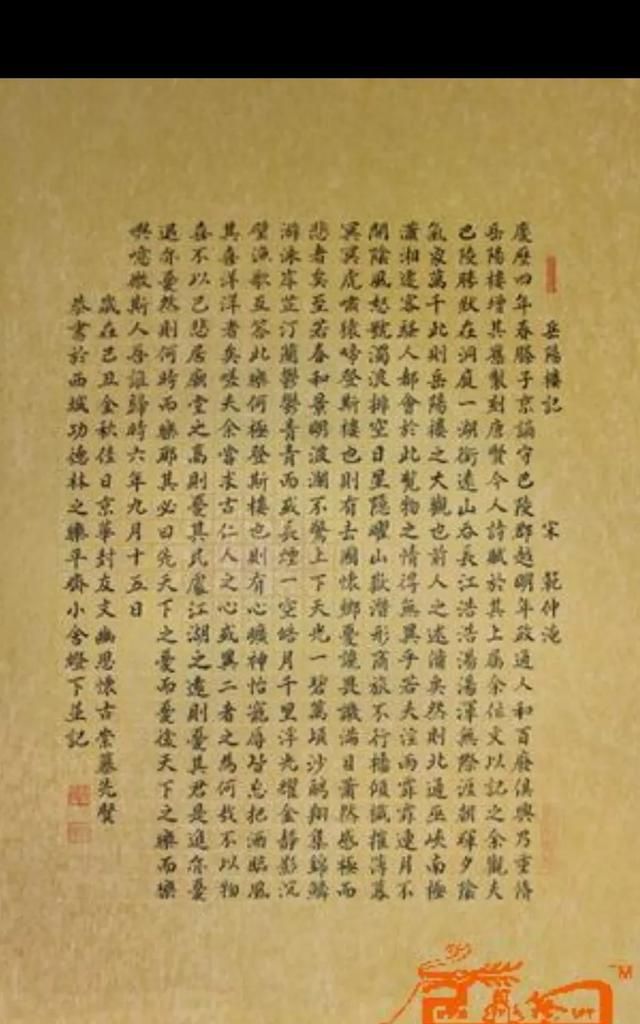 岳陽樓記 宋 範仲淹
慶歷四年春滕子京謫守巴陵郡越明年政通人和百廢俱興乃重脩
岳陽樓增其舊製刻唐賢今人詩賦於其上屬余作文以記之余觀夫
巴陵勝狀在洞庭一湖銜遠山吞長江浩浩湯湯渾無際涯朝暉夕陰
氣象萬千此則岳陽樓之大觀也前人之述備矣然則北通巫峽南極
瀟湘遷客騷人都會於此覽物之情得無異乎若夫淫雨霏霏連月不
開陰風怒號濁浪排空日星隱曜山嶽潛形商旅不行檣傾檝摧薄暮
冥冥虎嘯猿啼登斯樓也則有去國懷鄉憂讒畏譏滿目蕭然感極而
悲者矣至若春和景明波瀾不驚上下天光一碧萬頃沙鷗翔集錦鱗
游泳岸芷汀蘭鬱鬱青青而或長煙一空皓月千里浮光耀金靜影沉
璧漁歌互答此樂何極登斯樓也則有心曠神怡寵辱皆忘把酒臨風
其喜洋洋者矣嗟夫余嘗求古仁人之心或異二者之為何哉不以物
喜不以己悲居廟堂之高則憂其民處江湖之遠則憂其君是進亦憂
退亦憂然則何時而樂耶其必曰先天下之憂而憂後天下之樂而樂
歟噫微斯人吾誰歸時六年九月十五日
歲在己丑金秋佳日京華封友文幽思懷古崇慕先賢
恭書於西城功德林之樂平齋小舍燈下並記